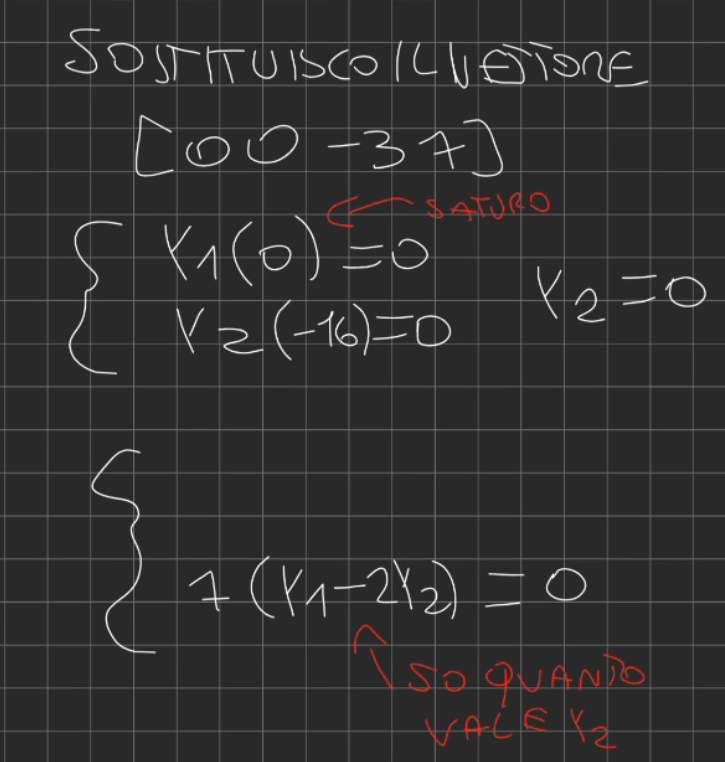 SOSTITUISCO IL VETTORE
[0 0 -3 7]
Y1(0)=0
SATURO
Y2(-16)=0
Y2=0
7(Y1-2Y2)=0
SO QUANTO
VALE Y2